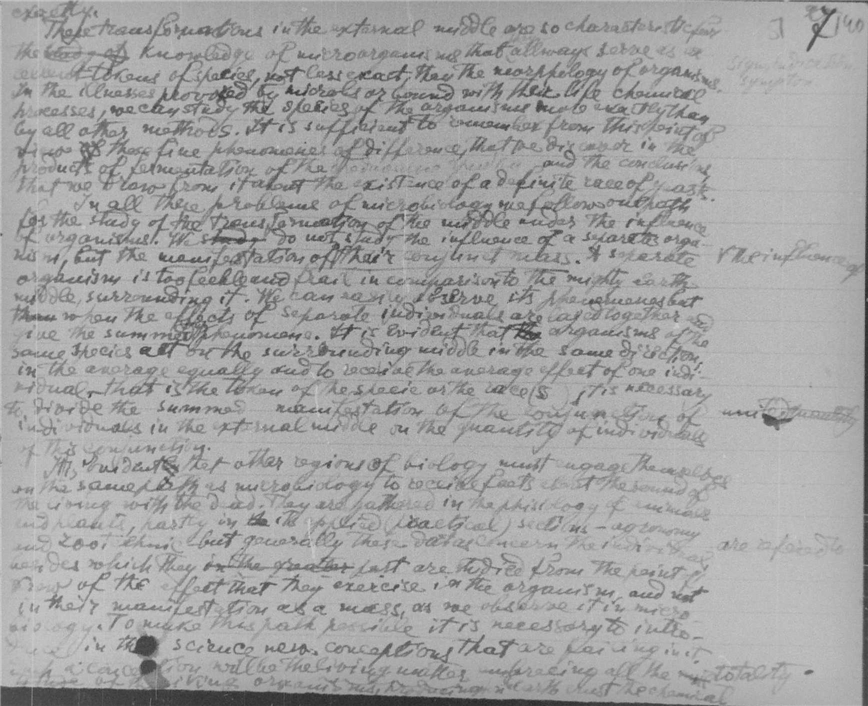 exactly.
These transformations in the external middle are so characteristic for
the study of knowledge of microorganisms that allways serve as a
tokens of species, not less exact, then the morphology of organisms.
In the illnesses provoked by microbs or bound with their life chemical
processes, we can study the species of the organisms more exactly than
by all other methods. It is sufficient to remember from this point of
view of these fine phenomenes of difference, that we discover in the
products of fermentation of the and the conclusions,
that we draw from it about the existence of a definite race of yeasts.
In all these problems of microbiology we follow one path
for the study of the transformation of the middle under the influence
of organisms. We study do not study the influence of a separate orga-
nism, but the manifestation of their conjunct mass. A separate the influence of
organism is too feeble and frail in comparison to the mighty earth
middle, surrounding it. We can easily observe its phenomenes but
then when the effects of separate individuals are together and
give the summed phenomene. It is evident that the organisms of the
same species act on the surrounding middle in the same direction,
in the average equally and to receive the average effect of one indi-
vidual, that is the token of the specie or the race(s), it is necessary
to divide the summed manifestation of the conjunction of
individuals in the external middle on the quantity of individuals
of this conjunction.
It is evident that other regions of biology must engage themselves
on the same path as microbiology to receive facts about the of
the living with the dead. They are gathered in the phisiology of animals
and plants, partly in the its applied (practical) sections - agronomy
and zootechnic but generally these data concern the individuals are refered to
besides which they in the greater part are studied from the point of
view of the effect that they exercise in the organism, and not
in their manifestation as a mass, as we observe it in micro-
biology. To make this path possible it is necessary to intro-
duce in the science new conceptions that are failing in it.
such a conception will be the living matter embracing all the totality
of the living organisms the chemical